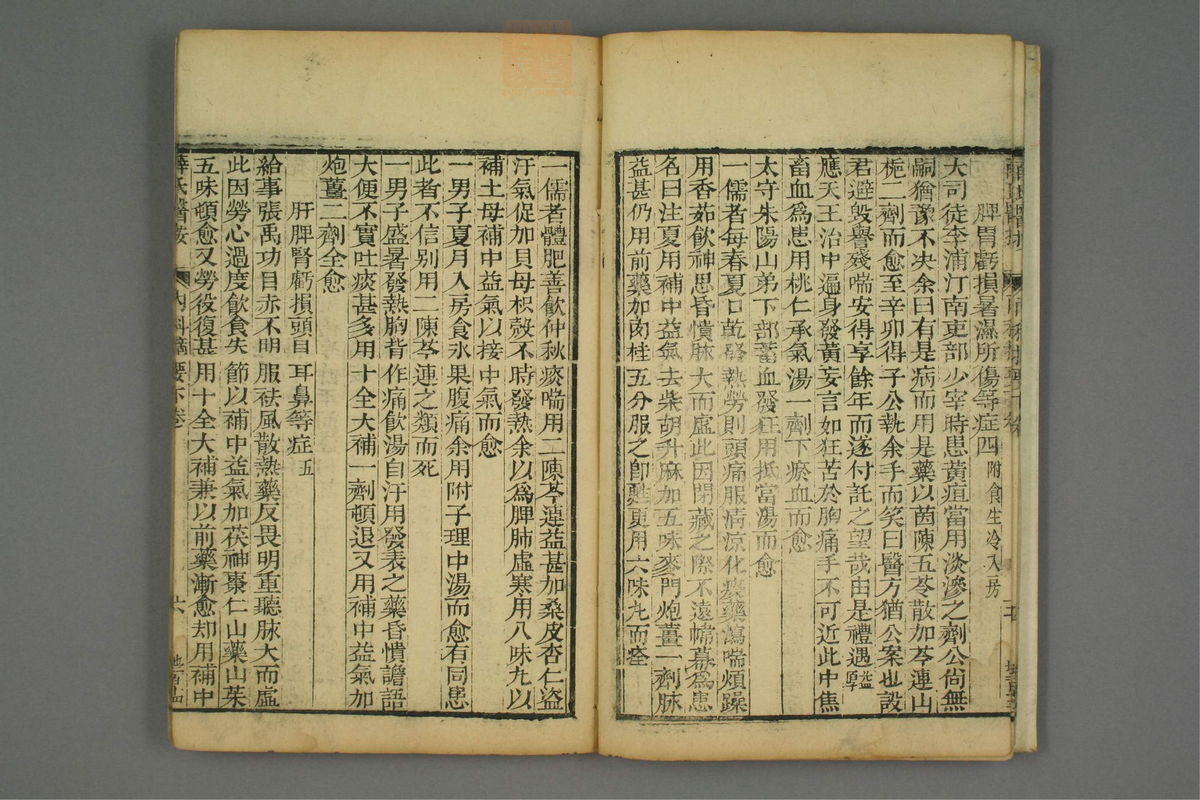 脾胃虧損暑濕所傷等症四 附食生冷入房
大司徒李浦汀南吏部少宰時患黃疸當用淡滲之劑公尚無
嗣猶豫不决余曰有是病而用是藥以茵陳五苓散加芩連山
梔二劑而愈至辛卯得子公執余手而笑曰醫方猶公案也設
君避毀譽殘喘安得享餘年而遂付託之望哉由是禮遇益厚
應天王治中遍身發黃妄言如狂苦於胸痛手不可近此中焦
畜血爲患用桃仁承氣湯一劑下瘀血而愈
太守朱陽山弟下部蓄血發狂用抵當湯而愈
一儒者每春夏口乾發熱勞則頭痛服淸涼化痰藥瀉喘煩躁
用香茹飲神思昏憒脉大而虛此因閉藏之際不遠幃幕爲患
名曰注夏用補中益氣去柴胡升麻加五味麥門炮薑一劑脉
益甚仍用前藥加肉桂五分服之卽甦更用六味丸而痊
一儒者體肥善飲仲秋痰喘用二陳芩連益甚加桑皮杏仁盜
汗氣促加貝母枳殼不時發熱余以爲脾肺虛寒用八味丸以
補土母補中益氣以接中氣而愈
一男子夏月入房食氷果腹痛余用附子理中湯而愈有同患
此者不信别用二陳芩連之類而死
一男子盛暑發熱胸背作痛飲湯自汗用發表之藥昏憒譫語
大便不實吐痰甚多用十全大補一劑頓退又用補中益氣加
炮薑二劑全愈
肝脾腎虧損頭目耳鼻等症 五
給事張禹功目赤不明服祛風散熱藥反畏明重聽脉大而虛
此因勞心過度飲食失節以補中益氣加茯神棗仁山藥山茱
五味頓愈又勞役復甚用十全大補兼以前藥漸愈却用補中
薛氏醫按 內科摘要下卷 六